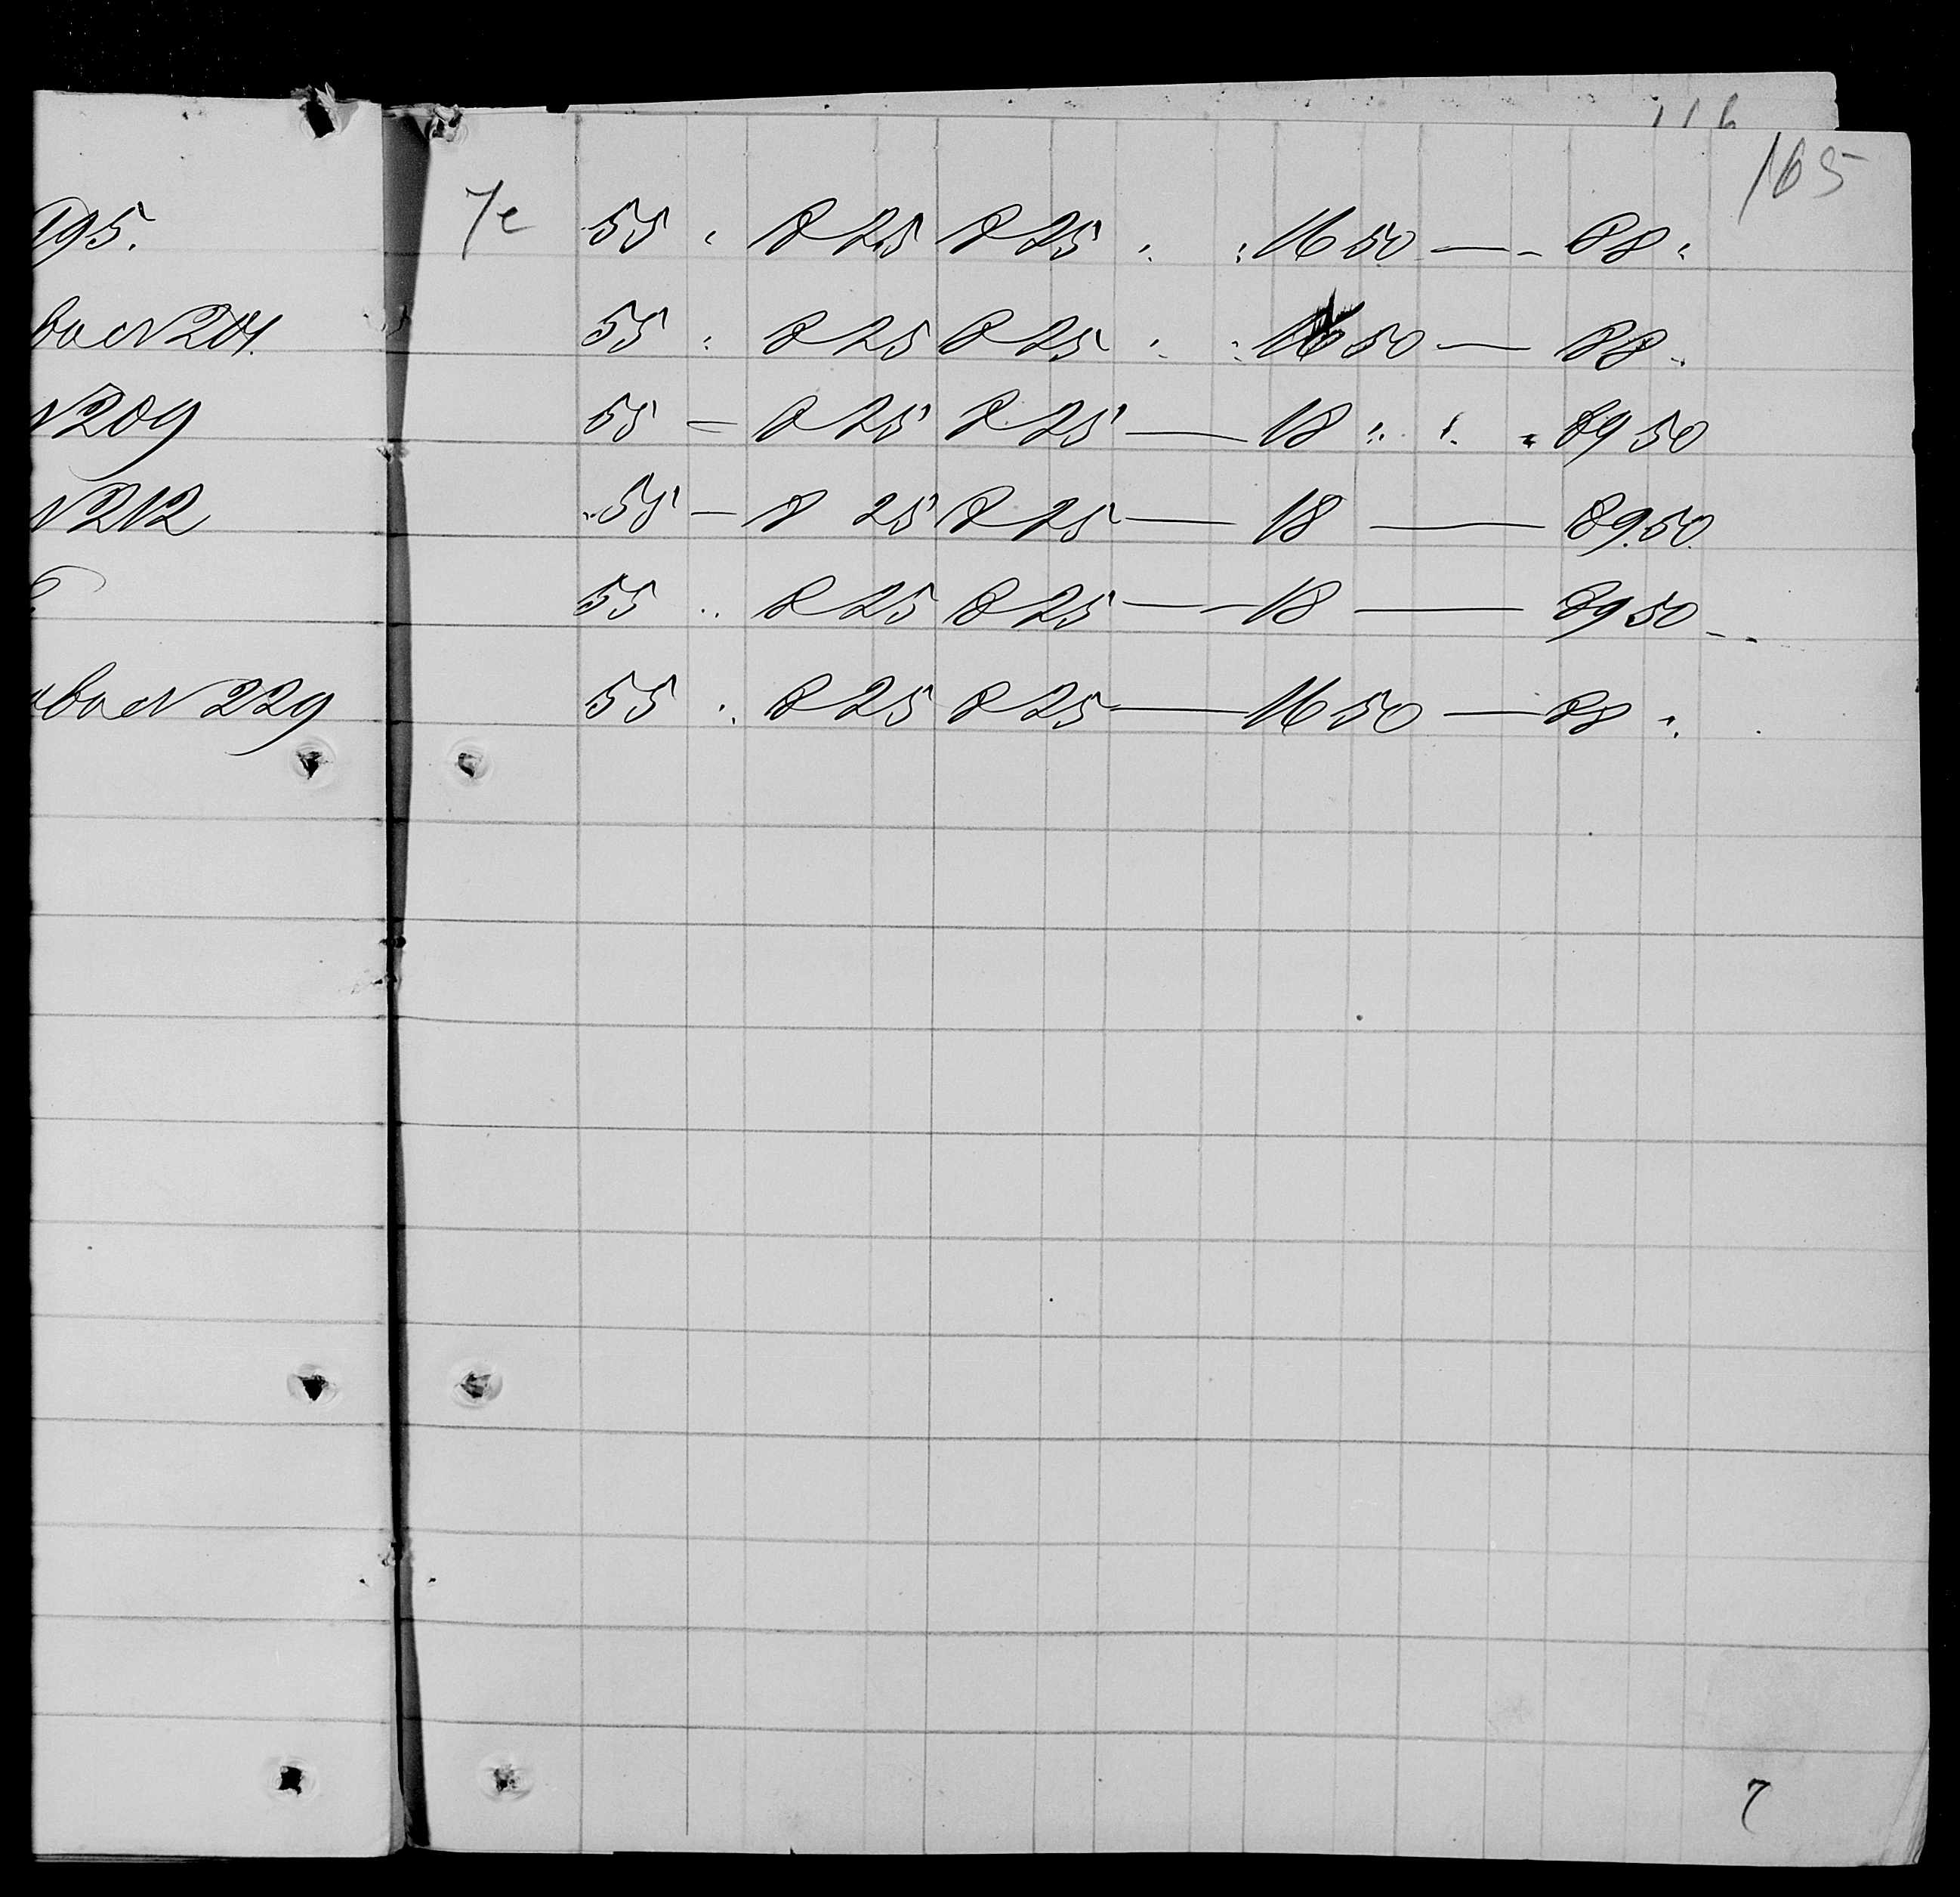 165
7е 55 " 8 25 8 25 " " 16 50 — 88 "
№ 204. 55 " 8 25 8 25 " " 16 50 — 88 "
№ 209 55 = 8 25 8 25 — 18 " " " 89 50
№ 212 55 — 8 25 8 25 — 18 — 89 50.
55 " 8 25 8 25 — 18 — 89 50
№ 229 55 " 8 25 8 25 — 16 50 — 88 "
7